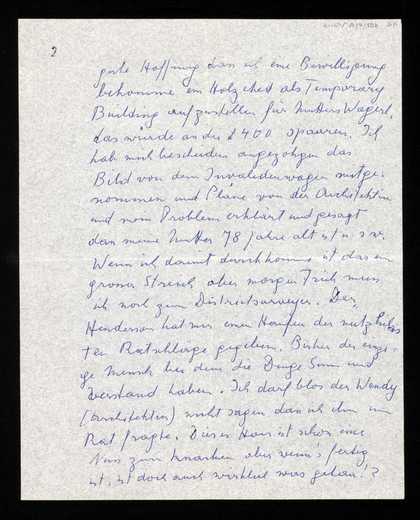 2
gute Hoffnung dass ich eine Bewilligung
bekomme ein Holzshed als Temporary
Building aufzustellen für Mutters Wagerl,
das würde an die £ 400 sparen. Ich
hab mich bescheiden angezogen das
Bild von dem Invalidenwagen mitge-
nommen und Pläne von der Architektin
und mein Problem erklärt und gesagt
dass meine Mutter 78 Jahre alt ist u.s.w.
Wenn ich damit durchkomme ist das ein
grosser Streich aber morgen Früh muss
ich noch zum Districtsurveyor. Der
Henderson hat mir einen Haufen der nützlichs
ten Ratschläge gegeben. Bisher der einzi-
ge Mensch bei dem die Dinge Sinn und
Verstand haben. Ich darf blos der Wendy
(Architektin) nicht sagen dass ich ihn um
Rat fragte. Dieses Haus ist schon eine
Nuss zum knacken aber wenn's fertig
ist, ist doch auch wirklich was getan!?